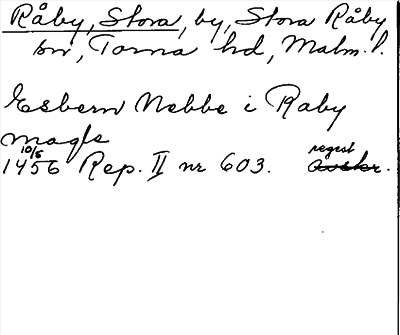 Råby, Stora, by, Stora Råby
sn, Torna hd, Malm. l.
Esbern Nebbe i Raby
magle
10/6
1456 Rep. II nr 603. regest
avskr.